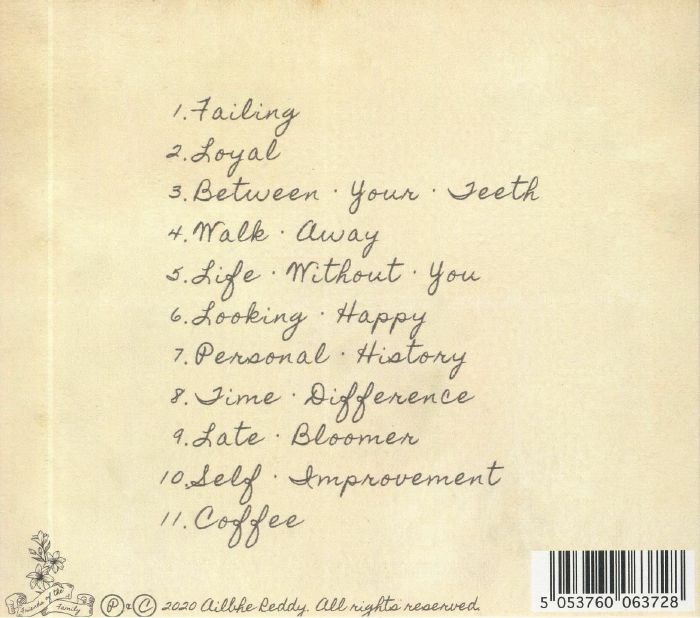 1. Failing
2. Loyal
3. Between · Your · Teeth
4. Walk · Away
5. Life · Without · You
6. Looking · Happy
7. Personal · History
8. Time · Difference
9. Late · Bloomer
10. Self · Improvement
11. Coffee
Friends of the Family
Ⓟ & Ⓒ 2020 Ailbhe Reddy. All rights reserved.
5 053760 063728